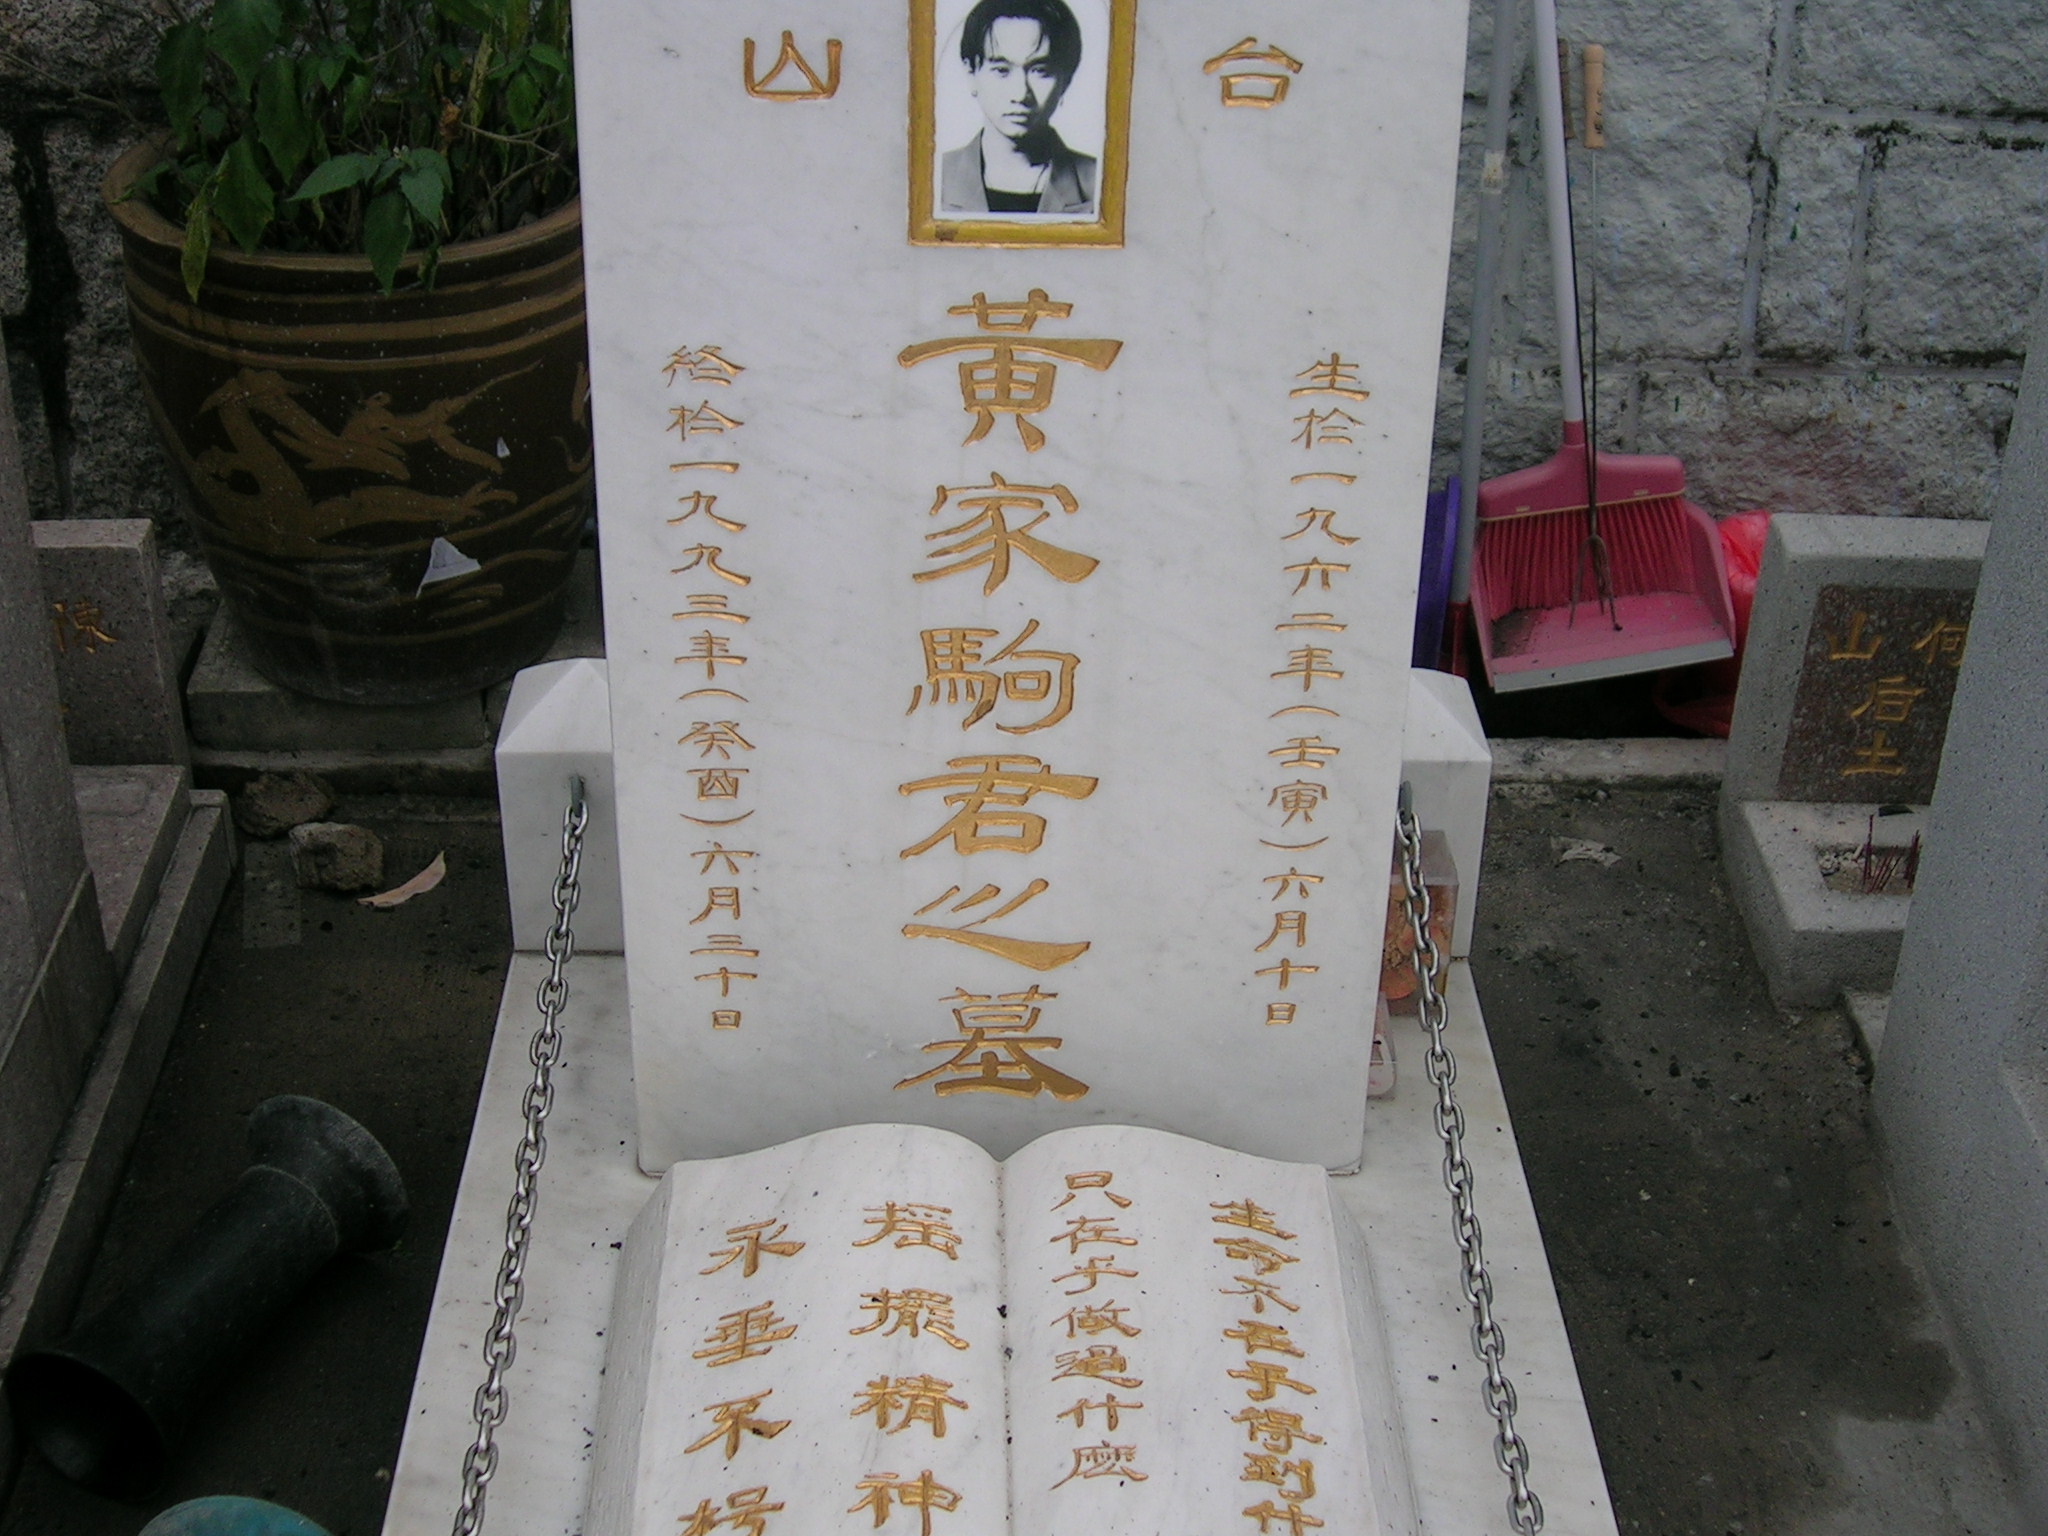 台山
生於一九六二年（壬寅）六月十日
黃家駒君之墓
終於一九九三年（癸酉）六月三十日
生命不在乎得到什
只在乎做過什麼
搖擺精神
永垂不朽
何
山后土
陳